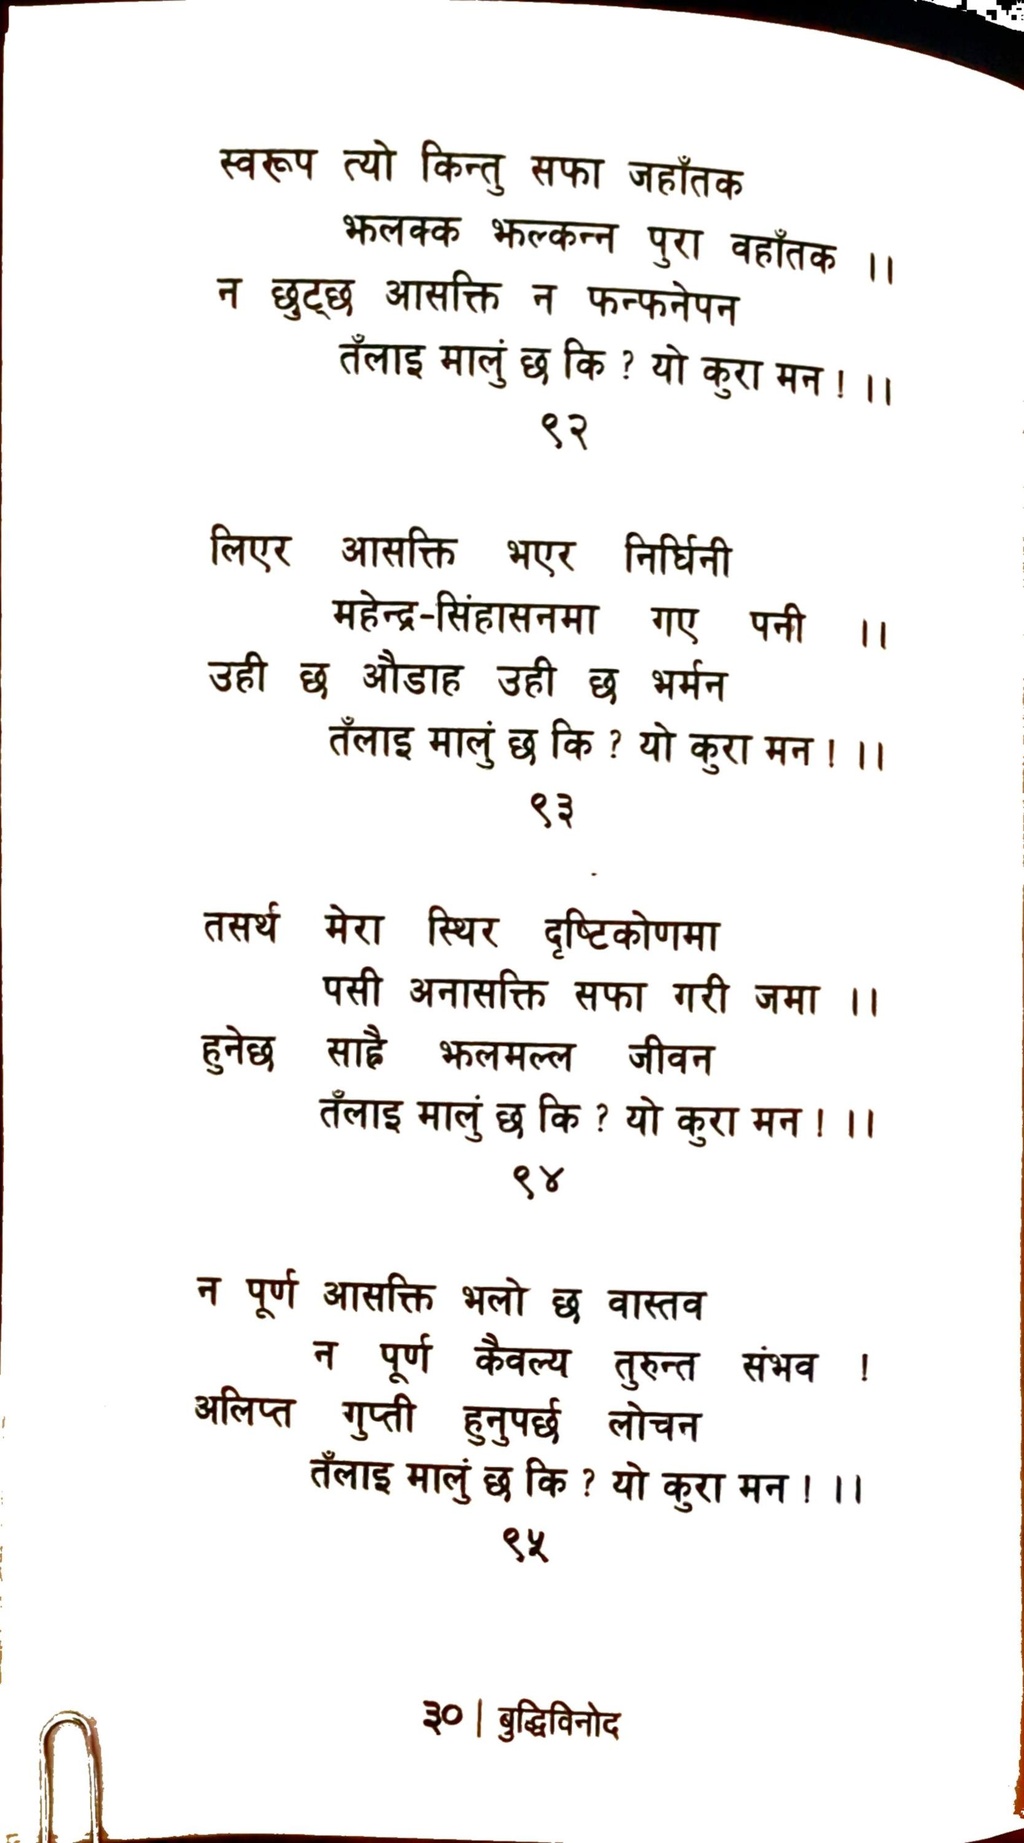 स्वरूप त्यो किन्तु सफा जहाँतक
झलक्क झल्कन्न पुरा वहाँतक ।।
न छुट्छ आसक्ति न फन्फनेपन
तँलाइ मालुं छ कि ? यो कुरा मन ! ।।
९२
लिएर आसक्ति भएर निर्घिनी
महेन्द्र-सिंहासनमा गए पनी ।।
उही छ औडाह उही छ भर्मन
तँलाइ मालुं छ कि ? यो कुरा मन ! ।।
९३
तसर्थ मेरा स्थिर दृष्टिकोणमा
पसी अनासक्ति सफा गरी जमा ।।
हुनेछ साह्रै झलमल्ल जीवन
तँलाइ मालुं छ कि ? यो कुरा मन ! ।।
९४
न पूर्ण आसक्ति भलो छ वास्तव
न पूर्ण कैवल्य तुरुन्त संभव !
अलिप्त गुप्ती हुनुपर्छ लोचन
तँलाइ मालुं छ कि ? यो कुरा मन ! ।।
९५
३० | बुद्धिविनोद